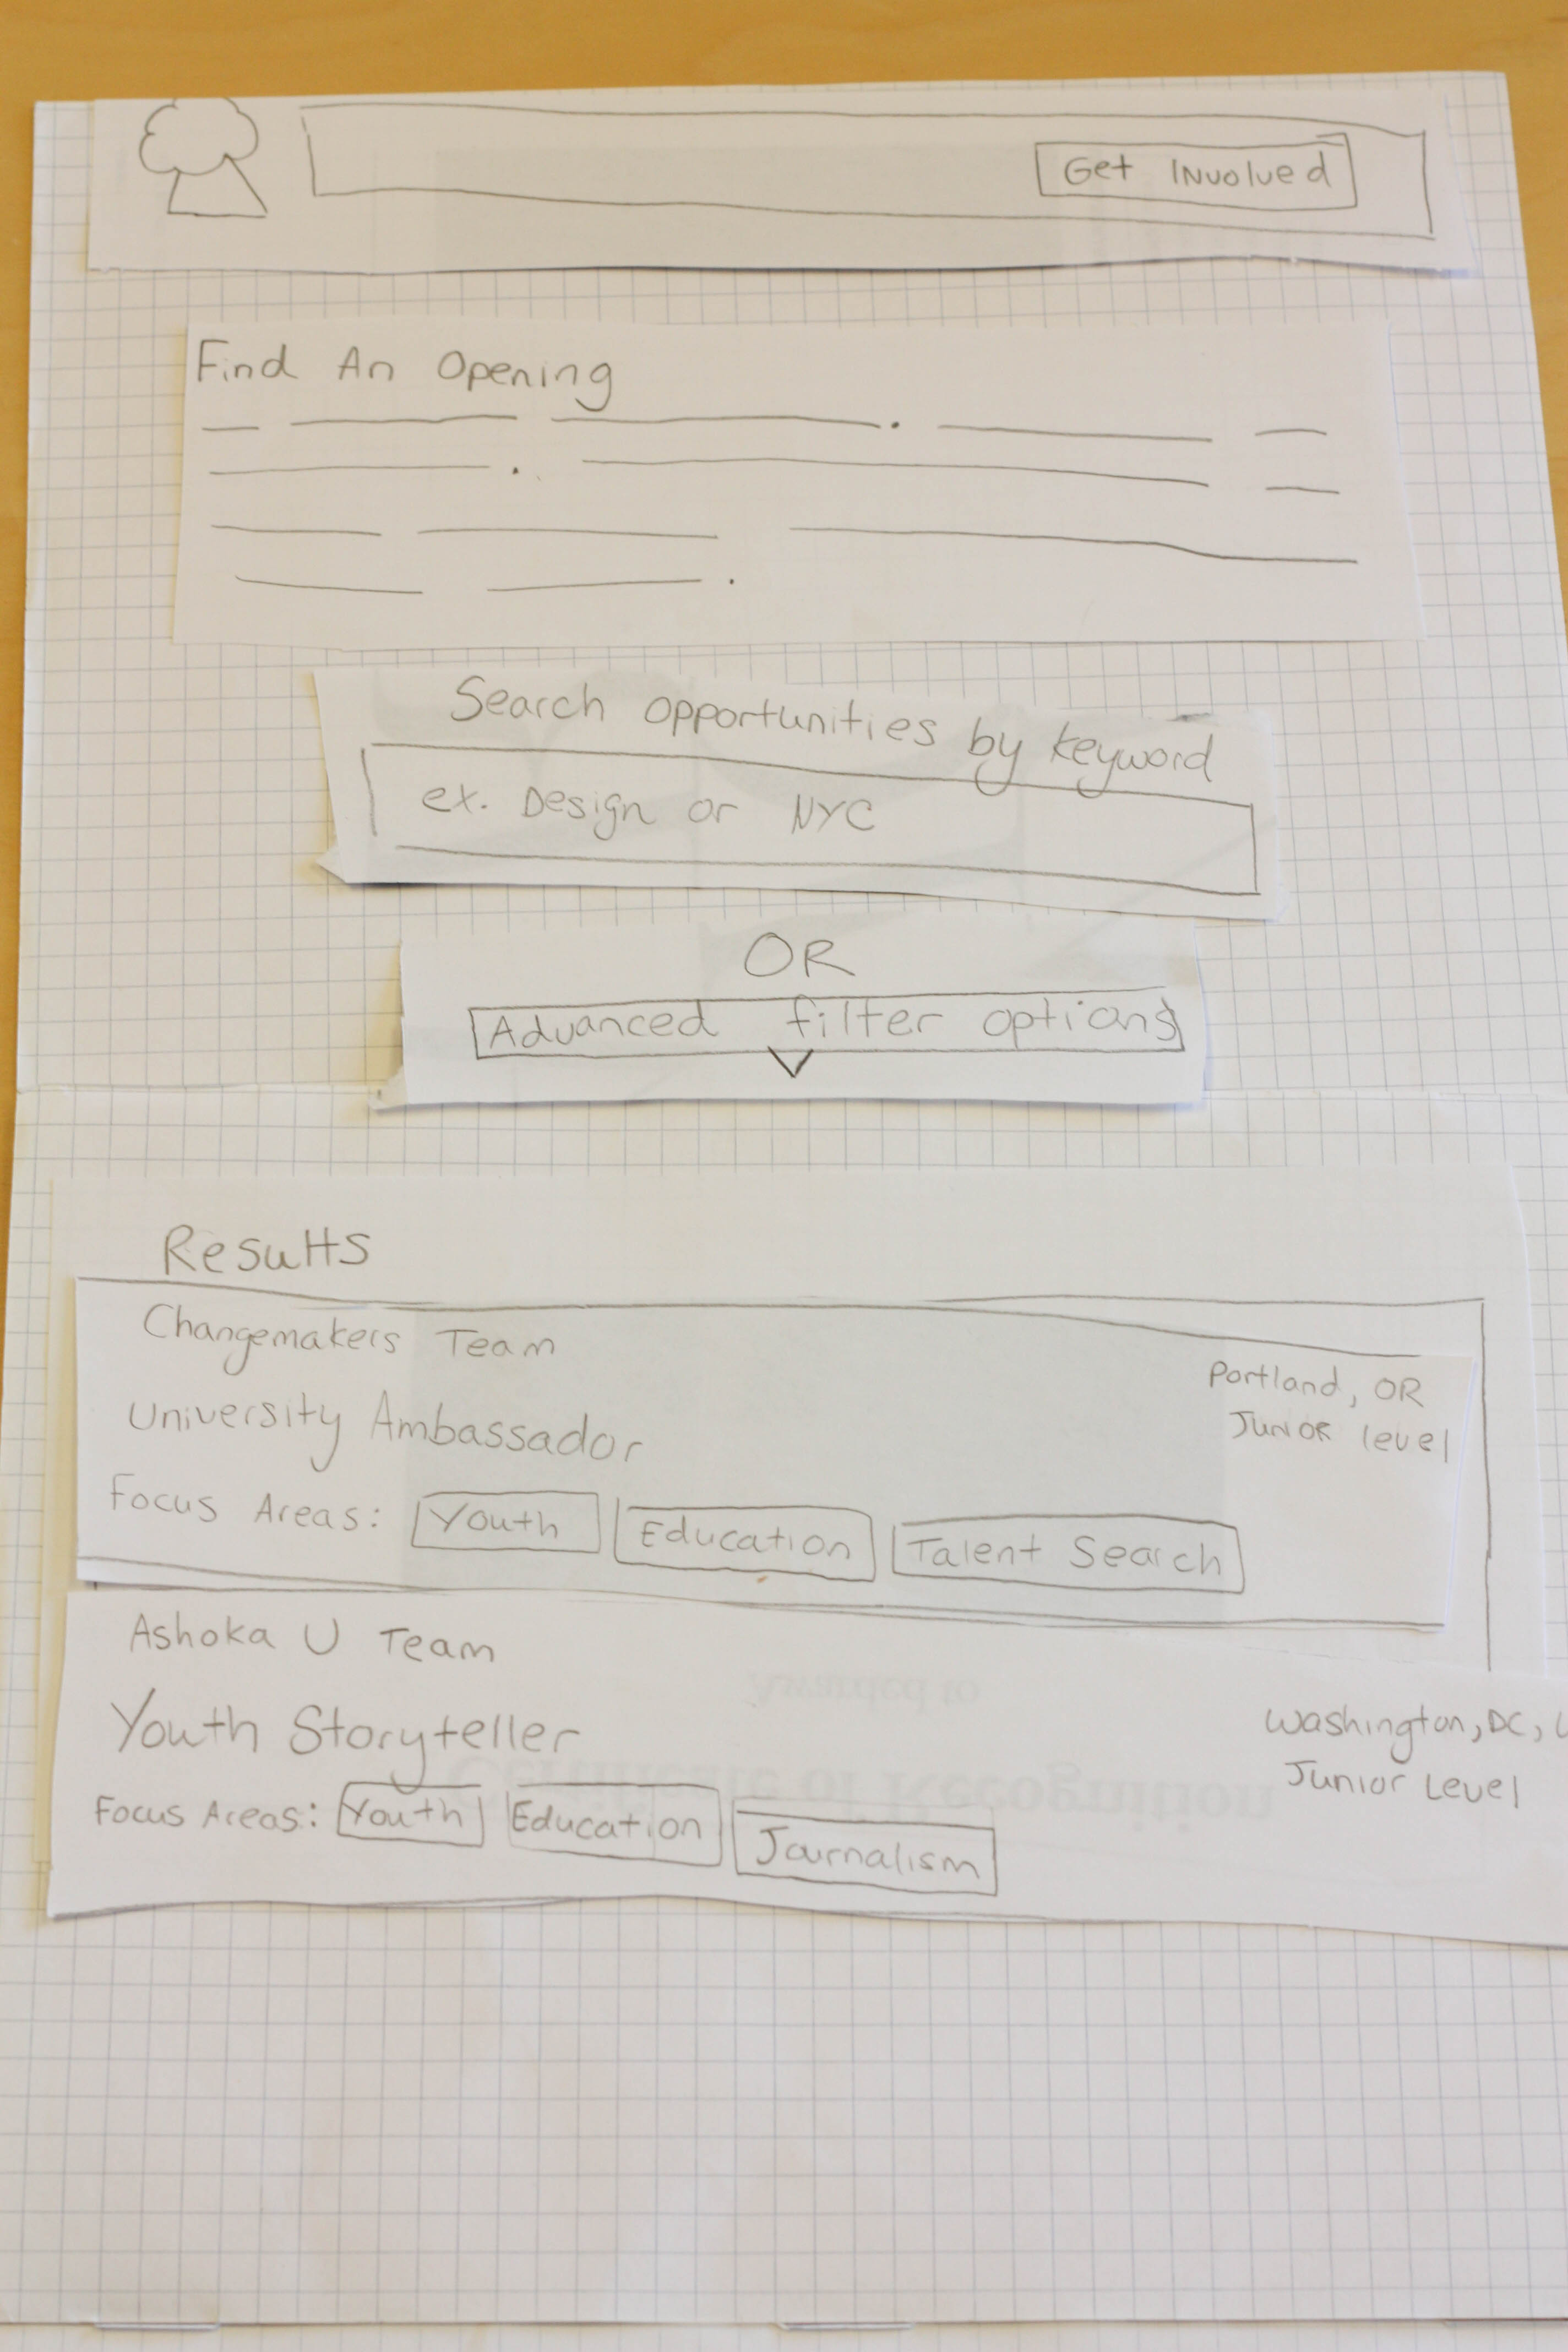 Get Involved
Find An Opening
Search opportunities by keyword
ex. Design or NYC
OR
Advanced filter options
Results
Changemakers Team
Portland, OR
University Ambassador
Junior level
Focus Areas: Youth Education Talent Search
Ashoka U Team
Awarded to
Youth Storyteller
Washington, DC, U
Certificate of Recognition
Junior Level
Focus Areas: Youth Education Journalism